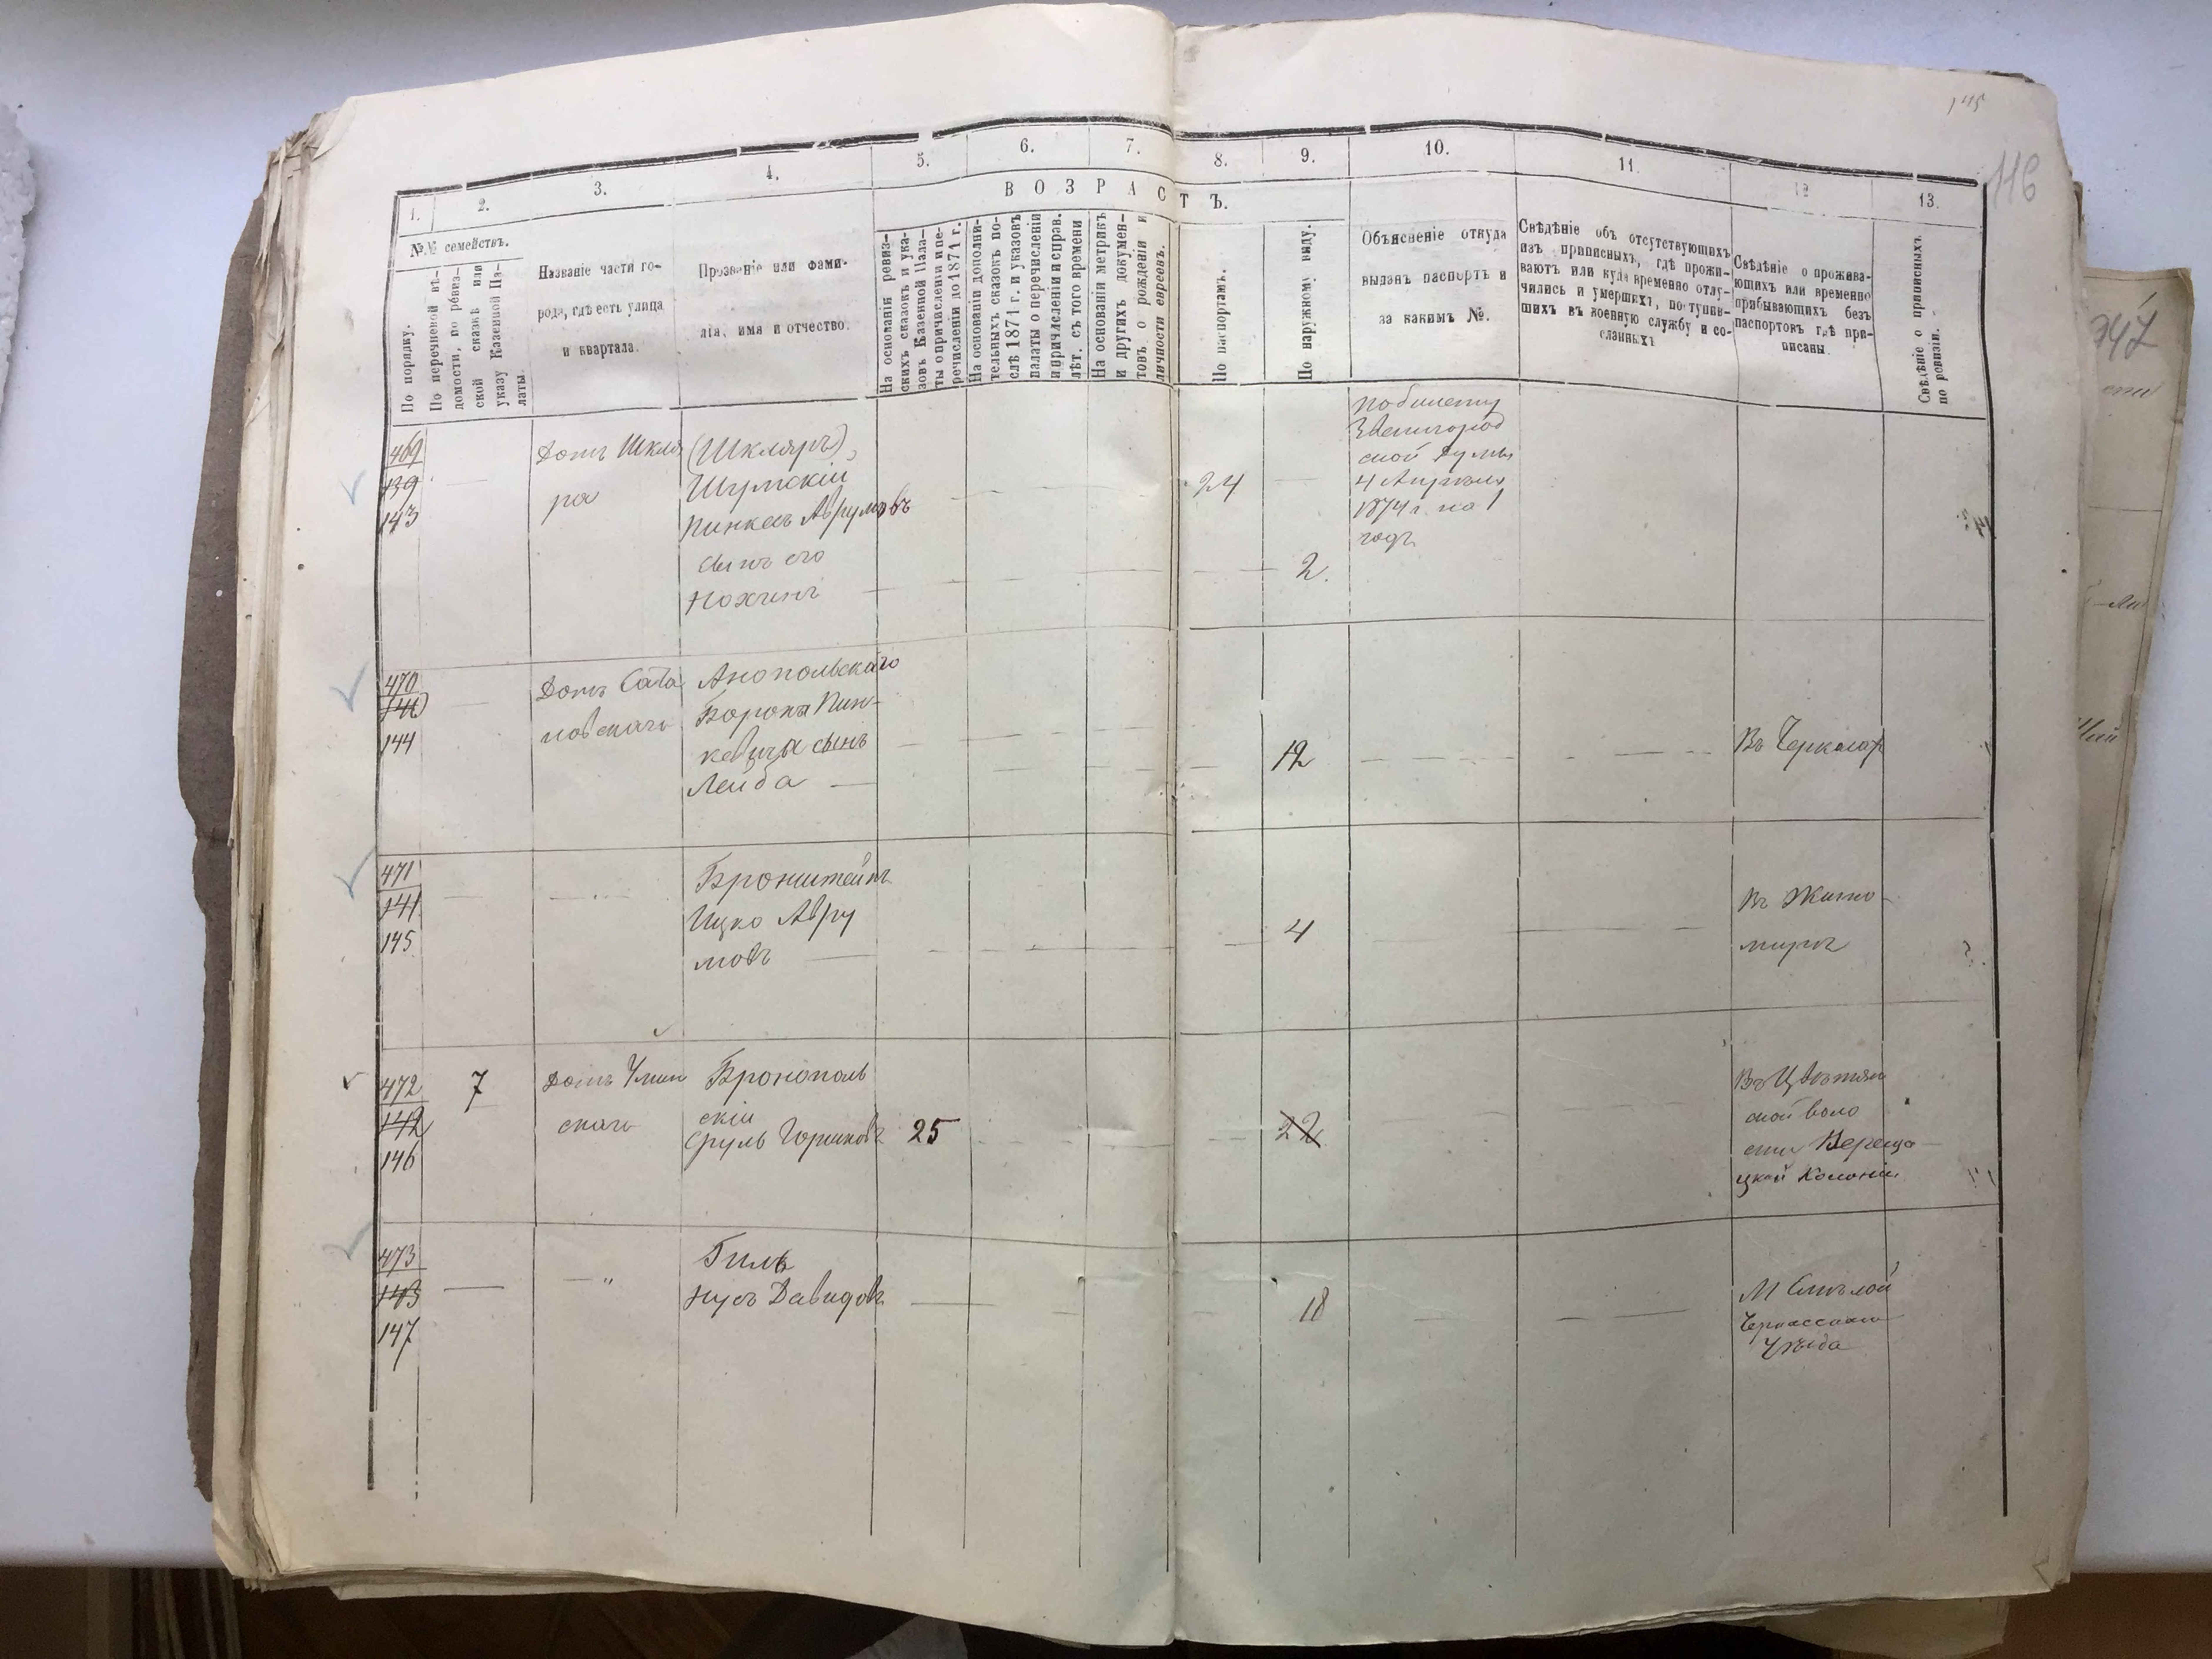 145
116
1.
2.
3.
4.
5.
6.
7.
8.
9.
10.
11.
12
13.
ВОЗРАСТЪ.
№№ семействъ.
По порядку.
По перечневой вѣ-
домости, по ревиз-
ской сказкѣ или
указу Казенной Па-
латы.
Названіе части го-
рода, гдѣ есть улица
и квартала.
Прозваніе или фами-
лія, имя и отчество.
На основаніи ревиз-
скихъ сказокъ и ука-
зовъ Казенной Пала-
ты о причисленіи и пе-
речисленіи до 1871 г.
На основаніи дополни-
тельныхъ сказокъ по-
слѣ 1871 г. и указовъ
палаты о перечисленіи
и причисленіи и справ.
лѣт. съ того времени
На основаніи метрикъ
и другихъ докумен-
товъ о рожденіи и
личности евреевъ.
По паспортамъ.
По наружному виду.
Объясненіе откуда
выданъ паспортъ и
за какимъ №.
Свѣдѣніе объ отсутствующихъ
изъ приписныхъ, гдѣ прожи-
ваютъ или куда временно отлу-
чились и умершихъ, поступив-
шихъ въ военную службу и со-
сланныхъ
Свѣдѣніе о прожива-
ющихъ или временно
прибывающихъ безъ
паспортовъ гдѣ при-
писаны.
Свѣдѣніе о приписныхъ
по ревизіи.
469
139
143
Домъ Шкля
ра
(Шкляръ),
Шумскій
Пинкасъ Аврумовъ
сынъ его
Нохимъ
24
2.
По билету
Звенигород
ской Думы
4 Апрѣля
1874 г. на 1
годъ
470
140
144
Домъ Сата
новскаго
Анопольскаго
Бороха Пин-
кевича сынъ
Лейба
12
Въ Черкасах
471
141
145
Бронштейнъ
Ицко Авру
мовъ
4
Въ Жито-
мирѣ
472
142
146
7
Домъ Уман
скаго
Бронополь
скій
Сруль Горшковъ
25
22
Въ Цвѣтян
ской воло
сти Вереща
цкой Колоніи
473
143
147
"
Гиль
Нусъ Давидовъ
18
М Смѣлой
Черкасскаго
Уѣзда